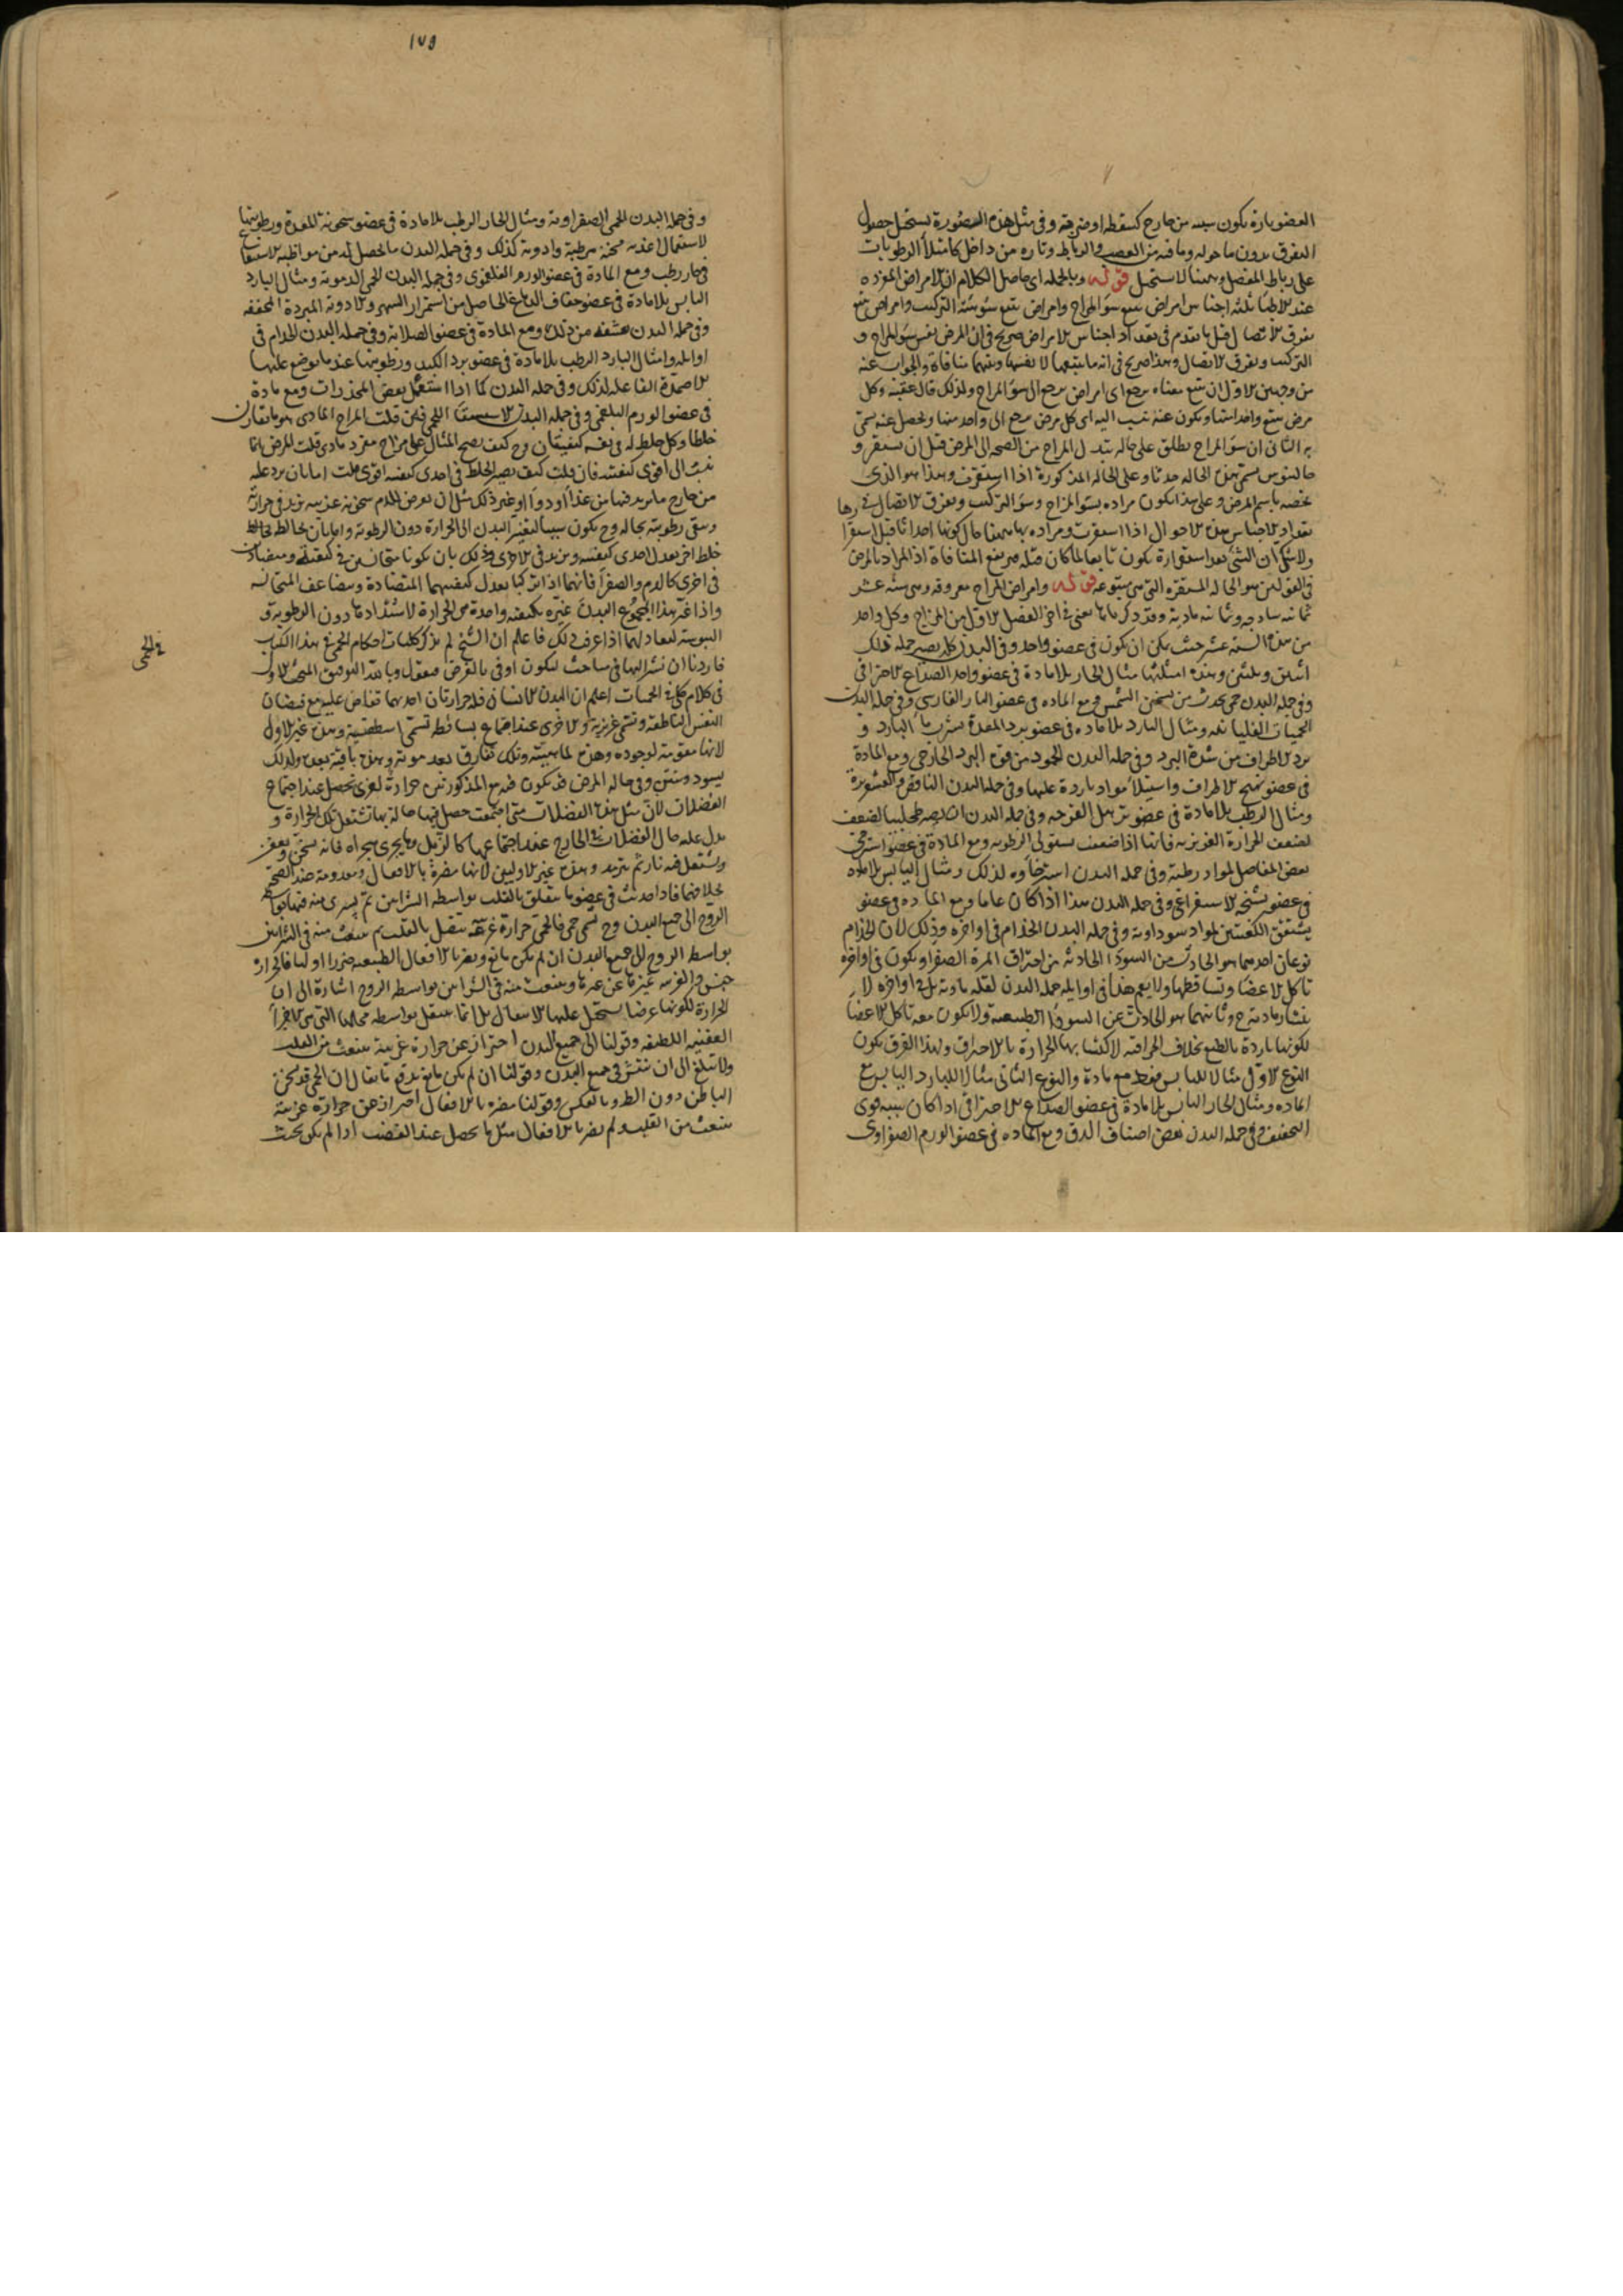 العضو بارة يكون سببه من خارج كسقطة او ضربة وفي مثل هذه الصورة يستحيل حصول
التفرق بدون ما حوله وما فيه من العصب والرباط وتارة من داخل كامتلأ الرطوبات
على رباط المفصل وههنا لا يستحيل قوله وبالجملة اي حاصل الكلام ان الامراض المفردة
عند الاطبا ثلثة اجناس امراض تتبع سؤ المزاج وامراض تتبع سؤ هيئة التركيب وامراض تتبع
تفرق الاتصال قيل ما تقدم في تعداد اجناس الامراض صريح في ان المرض نفس سؤ المزاج و
التركيب وتفرق الاتصال وهذا صريح في انه ما يتبعها لا نفسها وبينهما منافاة والجواب عنه
من وجهين الاول ان تتبع معناه يرجع اي امراض يرجع الى سؤ المزاج ولذلك قال عقبه وكل
مرض يتبع واحدا منها ويكون عنه ينسب اليه اي كل مرض يرجع الى واحد منها ويحصل عنه يسمى
به الثاني ان سؤ المزاج يطلق على حالة تبدل المزاج من الصحة الى المرض قبل ان يستقر و
جالينوس يسمي هذه الحالة حدثا وعلى الحالة المذكورة اذا استقرت وهذا هو الذي
يخصه باسم المرض وعلى هذا يكون مراده بسؤ المزاج وسؤ التركيب وتفرق الاتصال في
تعداد الاجناس هذه الاحوال اذا استقرت ومراده بها ههنا حال كونها احداثا قبل استقرا رها
ولا شك ان الشئ بعد استقراره يكون تابعا لما كان قبله فيرتفع المنافاة اذ المراد بالمرض
في القولين هو الحالة المستقرة التي هي متبوعة قوله وامراض المزاج معروفة وهي ستة عشر
ثمانية ساذجة وثمانية مادية وقد ذكر ما يعني في اخر الفصل الاول من المزاج وكل واحد
من هذه الستة عشر حيث يمكن ان يكون في عضو واحد وفي البدن كله يصير جملة ذلك
اثنين وثلثين وهذه امثلتها مثال الحار بلا مادة في عضو واحد الصداع الاحتراقي
وفي جملة البدن حمى يحدث من تسخين الشمس ومع المادة في عضو النار الفارسي وفي جملة البدن
الحميات الغليانية ومثال البارد بلا مادة في عضو برد المعدة بشرب ماء البارد و
برد الاطراف من شدة البرد وفي جملة البدن الجمود من قوة البرد الخارجي ومع المادة
في عضو تهيج الاطراف واستيلاء مواد باردة عليها وفي جملة البدن النافض والقشعريرة
ومثال الرطب بلا مادة في عضو ترهل القرحة وفي جملة البدن
لضعف الحرارة الغريزية فانها اذا ضعفت يستولى الرطوبة ومع المادة في عضو استرخى
بعض المفاصل لمواد رطبة وفي جملة البدن استرخاؤه لذلك ومثال اليابس بلا مادة
في عضو تشنجه الاستفراغي وفي جملة البدن هذا اذا كان عاما ومع المادة في عضو
تشقق الكفين لمواد سوداوية وفي جملة البدن الجذام في اواخره وذلك لان الجذام
نوعان احدهما هو الحادث من السودا الحادثة من احتراق المرة الصفرا ويكون في اواخره
تاكل الاعضا وتساقطها ولا يعم هذا في اوايله جملة البدن لقلة مادته بل في اواخره لا
نتشار مادته ح وثانيهما هو الحادث عن السودا الطبيعية ولا يكون معه تاكل الاعضا
لكونها باردة بالطبع بخلاف الحراقية لاكتسابها الحرارة بالاحتراق ولهذا الفرق يكون
النوع الاول مثالا لليابس فقط مع مادة والنوع الثاني مثالا للبارد اليابس مع
المادة ومثال الحار اليابس بلا مادة في عضو الصداع الاحتراقي اذا كان سببه قوى
التجفيف وفي جملة البدن بعض اصناف الدق ومع المادة في عضو الورم الصفراوى
١٧٥
وفي جملة البدن الحمى الصفراوية ومثال الحار الرطب بلا مادة في عضو سخونة المعدة ورطوبتها
لاستعمال اغذية مسخنة مرطبة وادوية كذلك وفي جملة البدن ما يحصل له من مواظبة الاستنقاع
في حار رطب ومع المادة في عضو الورم الفلغموني وفي جملة البدن الحمى الدموية ومثال البارد
اليابس بلا مادة في عضو جفاف الدماغ الحاصل من استمرار السهر والادوية المبردة المجففة
وفي جملة البدن من ذلك ومع المادة في عضو الصلابة وفي جملة البدن الجذام في
اوايله وامثال البارد الرطب بلا مادة في عضو برد الكبد ورطوبتها عند ما يوضع عليها
الاضمدة الفاعلة لذلك وفي جملة البدن كما اذا استعمل بعض المخدرات ومع مادة
في عضو الورم البلغمي وفي جملة البدن الاستسقا اللحمي فان قلت المزاج المادى هو ما يقارن
خلطا وكل خلط له في نفسه كيفيتان وح كيف يصح المثال على مزاج مفرد مادى قلت المرض انما
ينسب الى اقوى كيفيتيه فان قلت كيف يصير الخلط في احدى كيفيتيه اقوى قلت اما بان يرد عليه
من خارج ما يزيد فيها من غذاء او دواء او غير ذلك مثل ان يعرض للدم سخونة غريبة تزيد في حرارته
وتبقى رطوبته بحاله وح يكون سببا لتغير البدن الى الحرارة دون الرطوبة واما بان يخالط الخلط
خلط اخر يعدل احدى كيفيتيه ويزيد في الاخرى وذلك بان يكونا متجانسين في كيفية ومتضادين
في اخرى كالدم والصفرا فانهما اذا تركبا تعدل كيفيتهما المتضادة وتتضاعف المتجانسة
واذا غير هذا المجموع البدن غيره بكيفية واحدة هي الحرارة لاشتدادها دون الرطوبة و
اليبوسة لتعادلهما اذا عرف ذلك فاعلم ان الشيخ لم يذكر كليات احكام الحمى في هذا الكتاب
فاردنا ان نشير اليها في مباحث ليكون اوفى بالغرض فنقول وبالله التوفيق المبحث الاول
في كلام كلي في الحميات اعلم ان البدن الانساني فيه حرارتان احديهما تفاض عليه مع فيضان
النفس الناطقة وتسمى غريزية والاخرى عند اجتماع بسائط تسمى اسطقسية وهذه غير الاولى
لانها مقومة لوجوده وهذه لماهيته وتلك تفارق بعد موته وهذه باقية بعده ولذلك
يسود وينتن وفي حالة المرض قد يكون فيه مع المذكورتين حرارة اخرى تحصل عند اجتماع
الفضلات لان مثل هذه الفضلات متى اجتمعت حصل فيها حالة بها تشتعل تلك الحرارة و
يدل عليه حال الفضلات في الخارج عند اجتماعها كالزبل وما يجري مجراه فانه يسخن ويعفن
ويشتعل فيه نار ثم يترمد وهذه غير الاوليين لانها مضرة بالافعال ومعدومة عند الصحة
بخلافهما فاذا حدثت في عضو ما يتعلق بالقلب بواسطة الشرائين ثم يسرى منه فيها بواسطة
الروح الى جميع البدن وح تسمى حمى فالحمى حرارة غريبة تتصل بالقلب ثم ينبعث منه في الشرائين
بواسطة الروح الى جميع البدن ان لم يكن مانع ويضر بالافعال الطبيعية ضررا اوليا فالحرارة
جنس والغريبة تميزها عن غيرها وينبعث منه في الشرائين بواسطة الروح اشارة الى ان
الحرارة لكونها عرضا يستحيل عليها الانتقال بل انما ينتقل بواسطة محالها التي هي الاجزأ
العفنية اللطيفة وقولنا الى جميع البدن احتراز عن حرارة غريبة ينبعث من القلب
ولا تبلغ الى ان ينتشر في جميع البدن وقولنا ان لم يكن مانع يدفع ما يقال ان الحمى قد يسخن
الباطن دون الظاهر وبالعكس وقولنا مضرة بالافعال احتراز عن حرارة غريبة
ينبعث من القلب ولم يضر بالافعال مثل ما يحصل عند الغضب اذا لم يكن بحيث
في الحمى